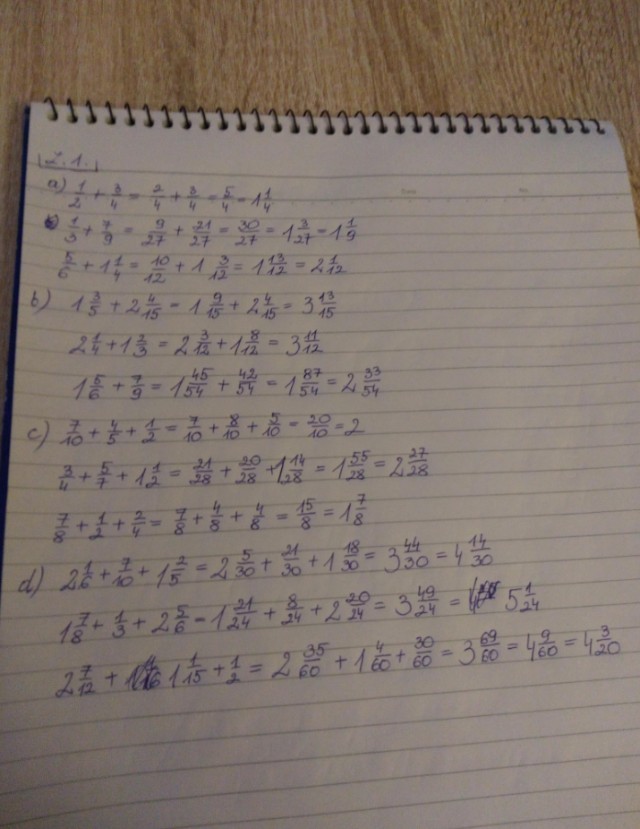 Z.1.
a) 1/2 + 3/4 = 2/4 + 3/4 = 5/4 = 1 1/4
1/3 + 7/9 = 9/27 + 21/27 = 30/27 = 1 3/27 = 1 1/9
5/6 + 1 1/4 = 10/12 + 1 3/12 = 1 13/12 = 2 1/12
b) 1 3/5 + 2 4/15 = 1 9/15 + 2 4/15 = 3 13/15
2 1/4 + 1 2/3 = 2 3/12 + 1 8/12 = 3 11/12
1 5/6 + 7/9 = 1 45/54 + 42/54 = 1 87/54 = 2 33/54
c) 7/10 + 4/5 + 1/2 = 7/10 + 8/10 + 5/10 = 20/10 = 2
3/4 + 5/7 + 1 1/2 = 21/28 + 20/28 + 1 14/28 = 1 55/28 = 2 27/28
7/8 + 1/2 + 2/4 = 7/8 + 4/8 + 4/8 = 15/8 = 1 7/8
d) 2 1/6 + 7/10 + 1 2/5 = 2 5/30 + 21/30 + 1 18/30 = 3 44/30 = 4 14/30
1 7/8 + 1/3 + 2 5/6 = 1 21/24 + 8/24 + 2 20/24 = 3 49/24 = 5 1/24
2 7/12 + 1 1/15 + 1/2 = 2 35/60 + 1 4/60 + 30/60 = 3 69/60 = 4 9/60 = 4 3/20